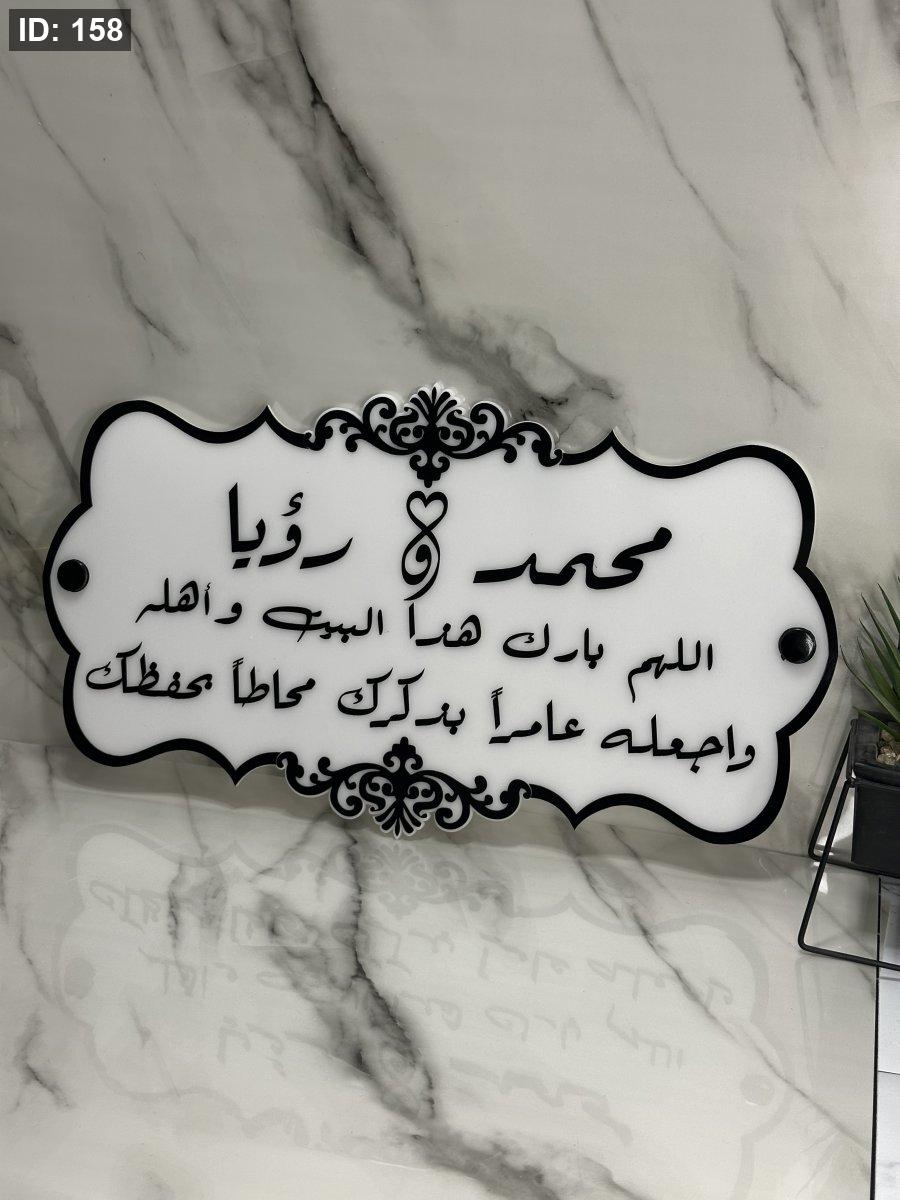 ID: 158
محمد و رؤيا
اللهم بارك هذا البيت وأهله
واجعله عامراً بذكرك محاطاً بحفظك